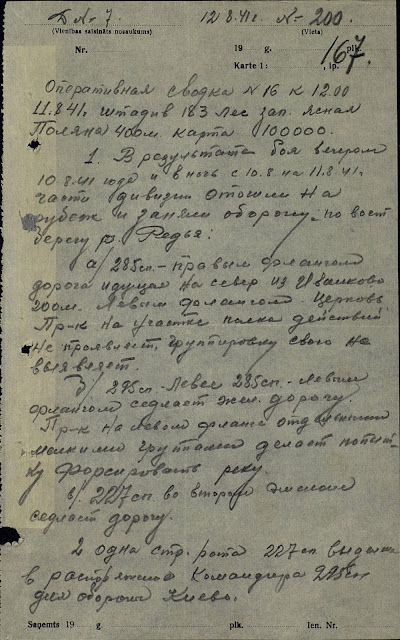 Д N-7. 12/8.41г. N- 200.
(Vienības saīsināts nosaukums) (Vieta)
Nr. 19 g. plk.
167.
Karte 1: , lp.
Оперативная сводка N 16 к 12.00
11.8.41г. штадив 183 лес зап. Ясная
Поляна 400м. карта 100000.
1. В результате боя вечером
10.8.41 года и в ночь с 10.8 на 11.8.41г.
части дивизии отошли на
рубеж и заняли оборону по вост
берегу р. Редья:
а/ 285сп - правым флангом
дорога идущая на север из Ивашково
200м. Левым флангом - Церковь
Пр-к на участке полка действий
не проявляет, группировку свою не
выявляет.
б/ 295сп - Левее 285сп. - левым
флангом седлает жел. дорогу.
Пр-к на левом фланге отдельными
мелкими группами делает попыт-
ку форсировать реку.
в/ 227сп во втором эшелоне
седлает дорогу.
2 одна стр. рота 227сп выделена
в распоряжение Командира 295сп
для обороны Киево.
Saņemts 19 g. plk. Ien. Nr.